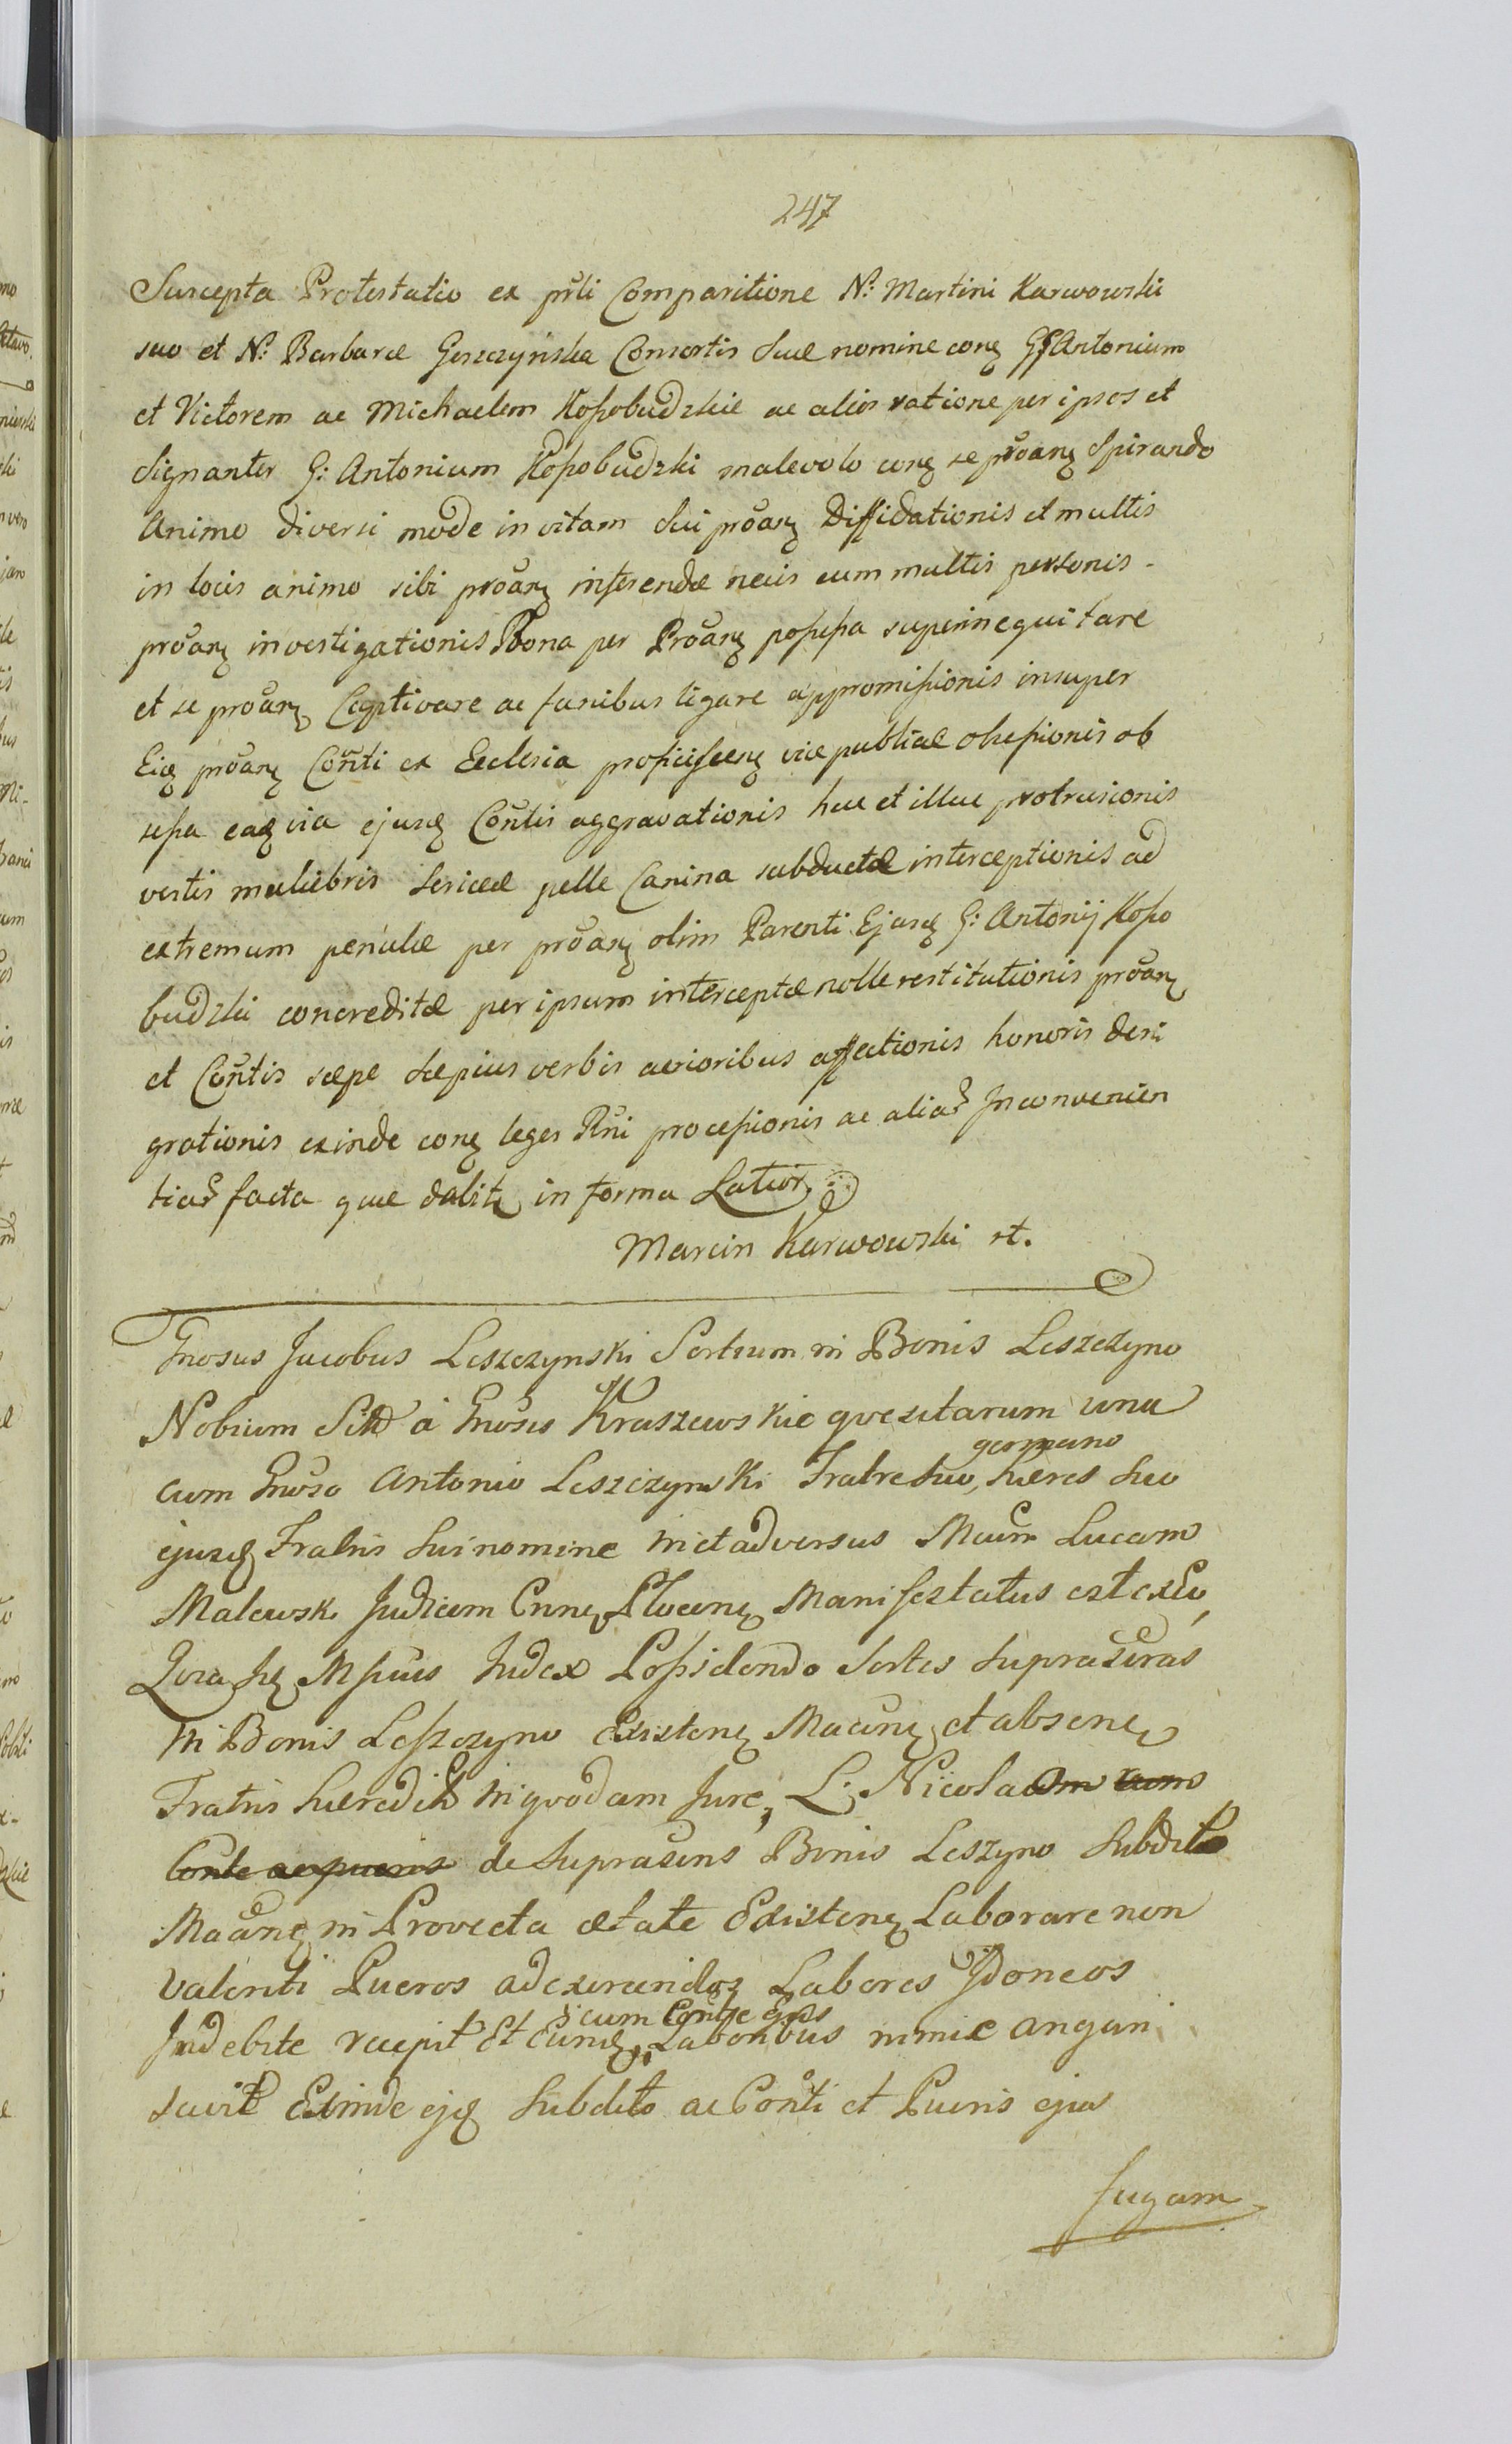 247
Suscepta Protestatio ex prłi Comparitione N: Martini Karwowski
suo et N: Barbaræ Goszczyńska Consortis Suæ nomine conꝫ GG Antonium
et Victorem ac Michaelem Kossobudzkie ac alios ratione per ipsos et
Signanter G: Antonium Kossobudzki malevolo conꝫ se proanꝫ Spirando
Animo diversi mode in vitam Sui proanꝫ Diffidationis et multis
in locis animo sibi proanꝫ inferendæ necis cum multis personis -
proanꝫ investigationis Bona per Proanꝫ possessa superinequitare
et se proanꝫ Captivare ac funibus ligare appromissionis insuper
Eidꝫ proanꝫ Conti ex Ecclesia proficiscenꝫ viæ publicæ obsessionis ob
sessa eaqꝫ via ejusdꝫ Contis aggravationis huc et illuc protrusionis
vestis muliebris Sericeæ pelle Canina subductæ interceptionis ad
extremum penulæ per proanꝫ olim Parenti Ejusdꝫ G: Antonij Kosso
budzki concreditæ per ipsum interceptæ nolle restitutionis proanꝫ
et Contis sæpe Sæpius verbis acrioribus affectionis honoris deni
grationis exinde conꝫ leges Rni processionis ac alias Inconvenien
tias facta quæ dabitꝫ in forma Latiori
Marcin Karwowski st.
Gnosus Jacobus Leszczynski Sortium in Bonis Leszczyno
Nobium Sitt à Gnosis Kraszewskie qvesitarum una
germano
cum Gnoso Antonio Leszczynski Fratre Suo, hæres Suo
ejusdꝫ Fratris Sui nomine in et adversus Mcum Lucam
Malewski Judicem Cnnꝫ Plocenꝫ Manifestatus est ex Eo,
Qvia Mfcus Judex Possidendo Sortes Suprascras
in Bonis Leszczyno Existenꝫ Maanꝫ et absenꝫ
Fratris hæredit in qvodam Jure, L: Nicolaum cum
Conte ac pueris de Suprascris Bonis Leszczyno Subdito
Maanꝫ in Provecta ætate Existenꝫ Laborare non
Valenti Pueros ad exercendos Labores Idoneos
cum Conge Ejus
Indebite recepit Et Eundꝫ Laboribus nimie angari
savit Exinde ejdꝫ Subdito ac Conti et Pueris ejus
fugam